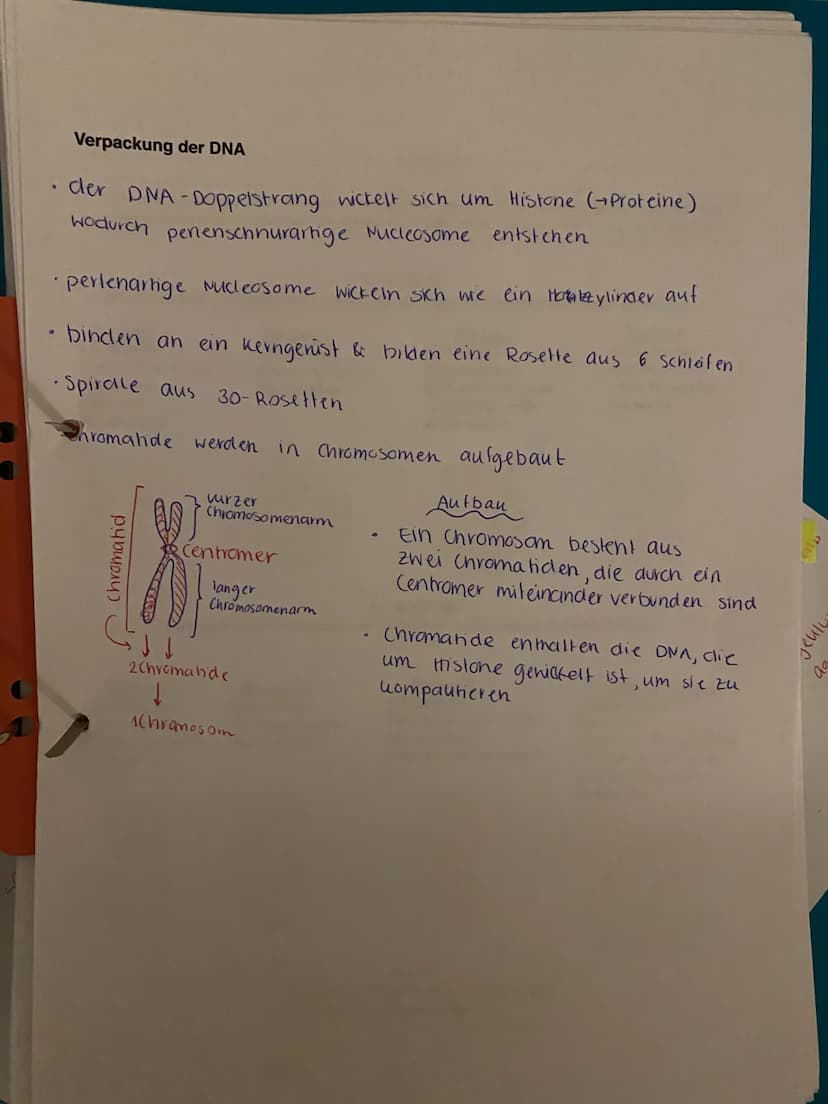 Verpackung der DNA
· der DNA-Doppelstrang wickelt sich um Histone (→Proteine)
wodurch perlenschnurartige Nucleosome entstehen
· perlenartige Nucleosome wickeln sich wie ein zylinder auf
· binden an ein Kerngerüst & bilden eine Rosette aus 6 Schleifen
· Spiralle aus 30-Rosetten
Chromatide werden in Chromosomen aufgebaut
kurzer
Chromosomenarm
Chromatid
Centromer
langer
Chromosomenarm
2 Chromatide
1 Chromosom
Aufbau
· Ein Chromosom besteht aus
zwei Chromatiden, die durch ein
Centromer miteinander verbunden sind
· Chromatide enthalten die DNA, die
um Histone gewickelt ist, um sie zu
kompaktieren